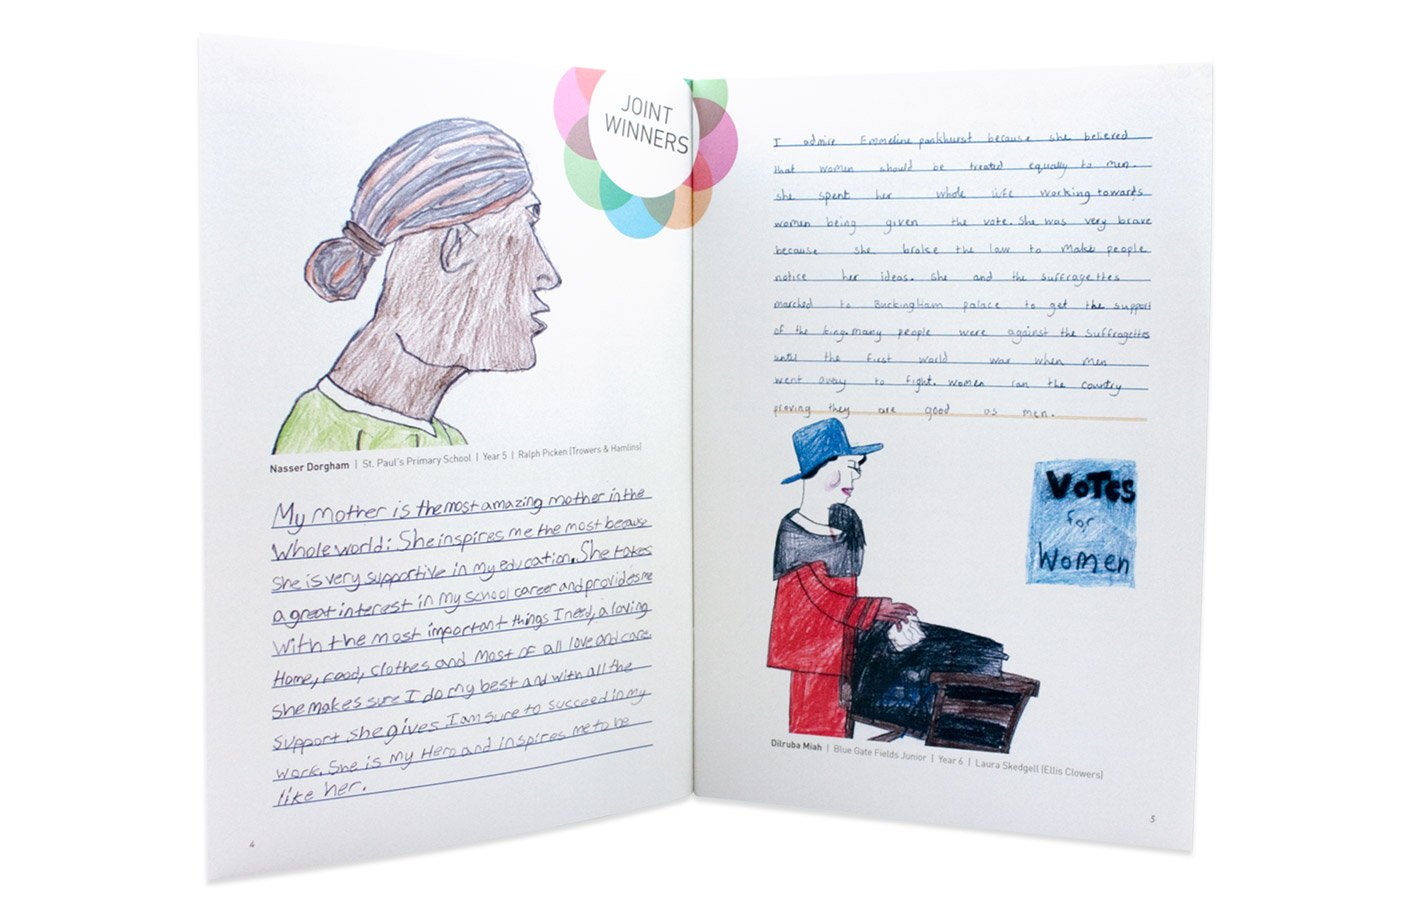 JOINT
WINNERS
Nasser Dorgham | St. Paul's Primary School | Year 5 | Ralph Picken (Trowers & Hamlins)
My mother is the most amazing mother in the
whole world: She inspires me the most because
she is very supportive in my education. She takes
a great interest in my school career and provides me
with the most important things I need, a loving
Home, food, clothes and most of all love and care.
she makes sure I do my best and with all the
support she gives I am sure to succeed in my
work. She is my Hero and inspires me to be
like her.
4
I admire Emmeline pankhurst because she believed
that women should be treated equally to men.
she spent her whole life working towards
women being given the vote. She was very brave
because she broke the law to make people
notice her ideas. she and the suffragettes
marched to Buckingham palace to get the support
of the king. many people were against the suffragettes
until the first world war when men
went away to fight. women ran the country
proving they are good as men.
VoTes
for
Women
Dilruba Miah | Blue Gate Fields Junior | Year 6 | Laura Skedgell (Ellis Clowers)
5